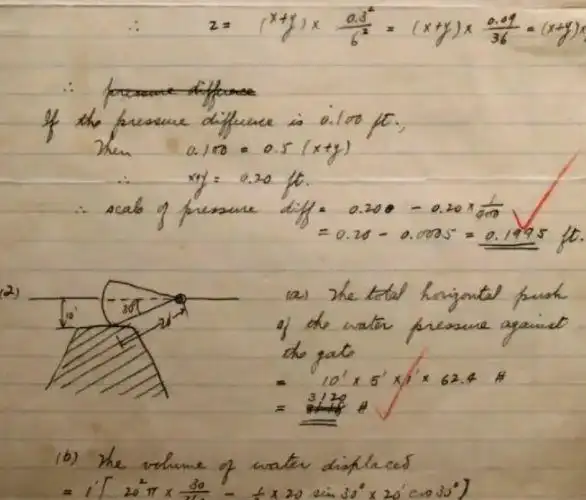 ∴ z = (x+y) × 0.3²/6² = (x+y) × 0.09/36 = (x+y)×
∴ pressure difference
If the pressure difference is 0.100 ft.,
Then 0.100 = 0.5 (x+y)
∴ x+y = 0.20 ft.
∴ scale of pressure diff = 0.200 - 0.20 ×
= 0.20 - 0.0005 = 0.1995 ft.
(2)
10'
30°
20'
(a) The total horizontal push
of the water pressure against
the gate
= 10' × 5' × 1' × 62.4 #
3,120
= #
(b) The volume of water displaced
= 1' [ 20² π × 30 - × 20 sin 30° × 20 cos 30° ]